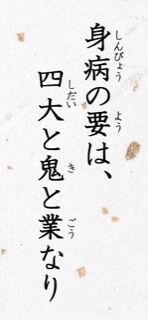 身病の要は、
四大と鬼と業なり
しんびょう
よう
しだい
き
ごう